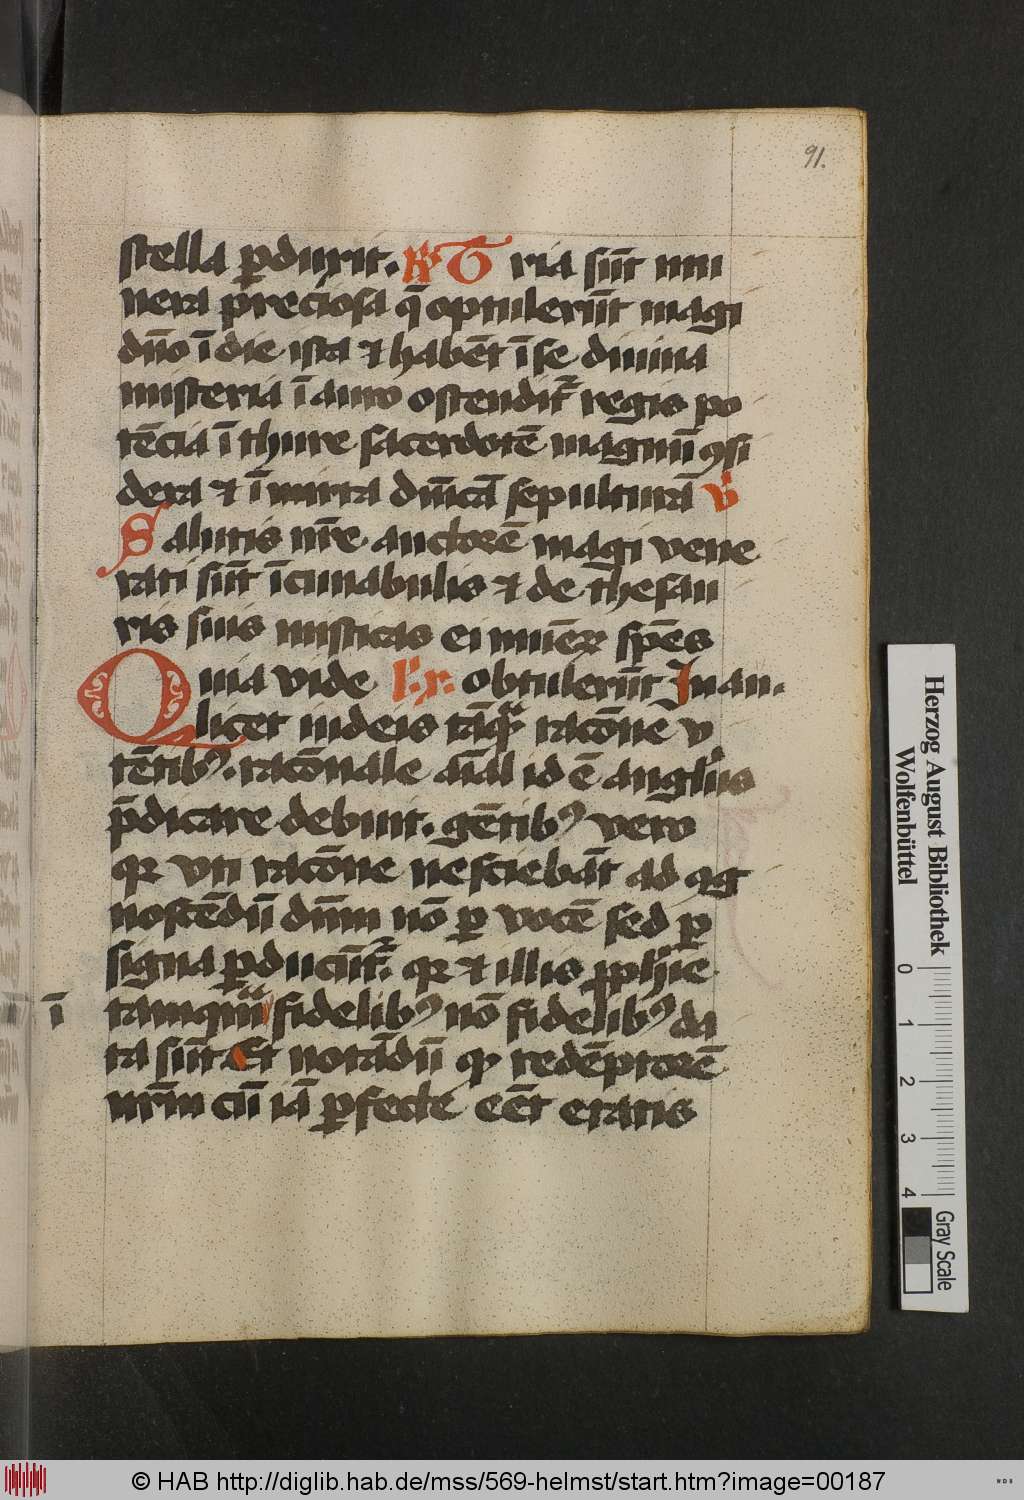 91.
stella ꝑduxit. R̷ Tria sūt mu
nera preciosa q̄ optulerūt magi
dn̄o ī die ista ⁊ habēt ī se diuina
misteria ī auro ostenditᷣ regis po
tēcia ī thure sacerdotē magnū ꝯsi
dera ⁊ ī mirra dn̄icā sepulturā V̷
Salutis nr̄e auctorē magi vene
rati sūt ī cunabulis ⁊ de thesau
ris suis misticas ei munerꝝ spēs
Quia vide obtulerūt
licet iudeis tāqᷓ racōne v
tētibꝰ. racōnale aīal id ē anglus
p̄dicare debuit. gētibꝰ vero
qꝛ vti racōne nesciebāt ad ꝯg
noscēdū dūm nō ꝑ vocē sed ꝑ
signa ꝑducūtᷣ. qꝛ ⁊ illis ꝓphie
ī tamqᷓm fidelibꝰ nō fidelibꝰ da
ta sūt Et notādū qꝛ redēptorē
nr̄m cū iā ꝑfecte eēt etatis
Herzog August Bibliothek
Wolfenbüttel
0 1 2 3 4
Gray Scale
© HAB http://diglib.hab.de/mss/569-helmst/start.htm?image=00187